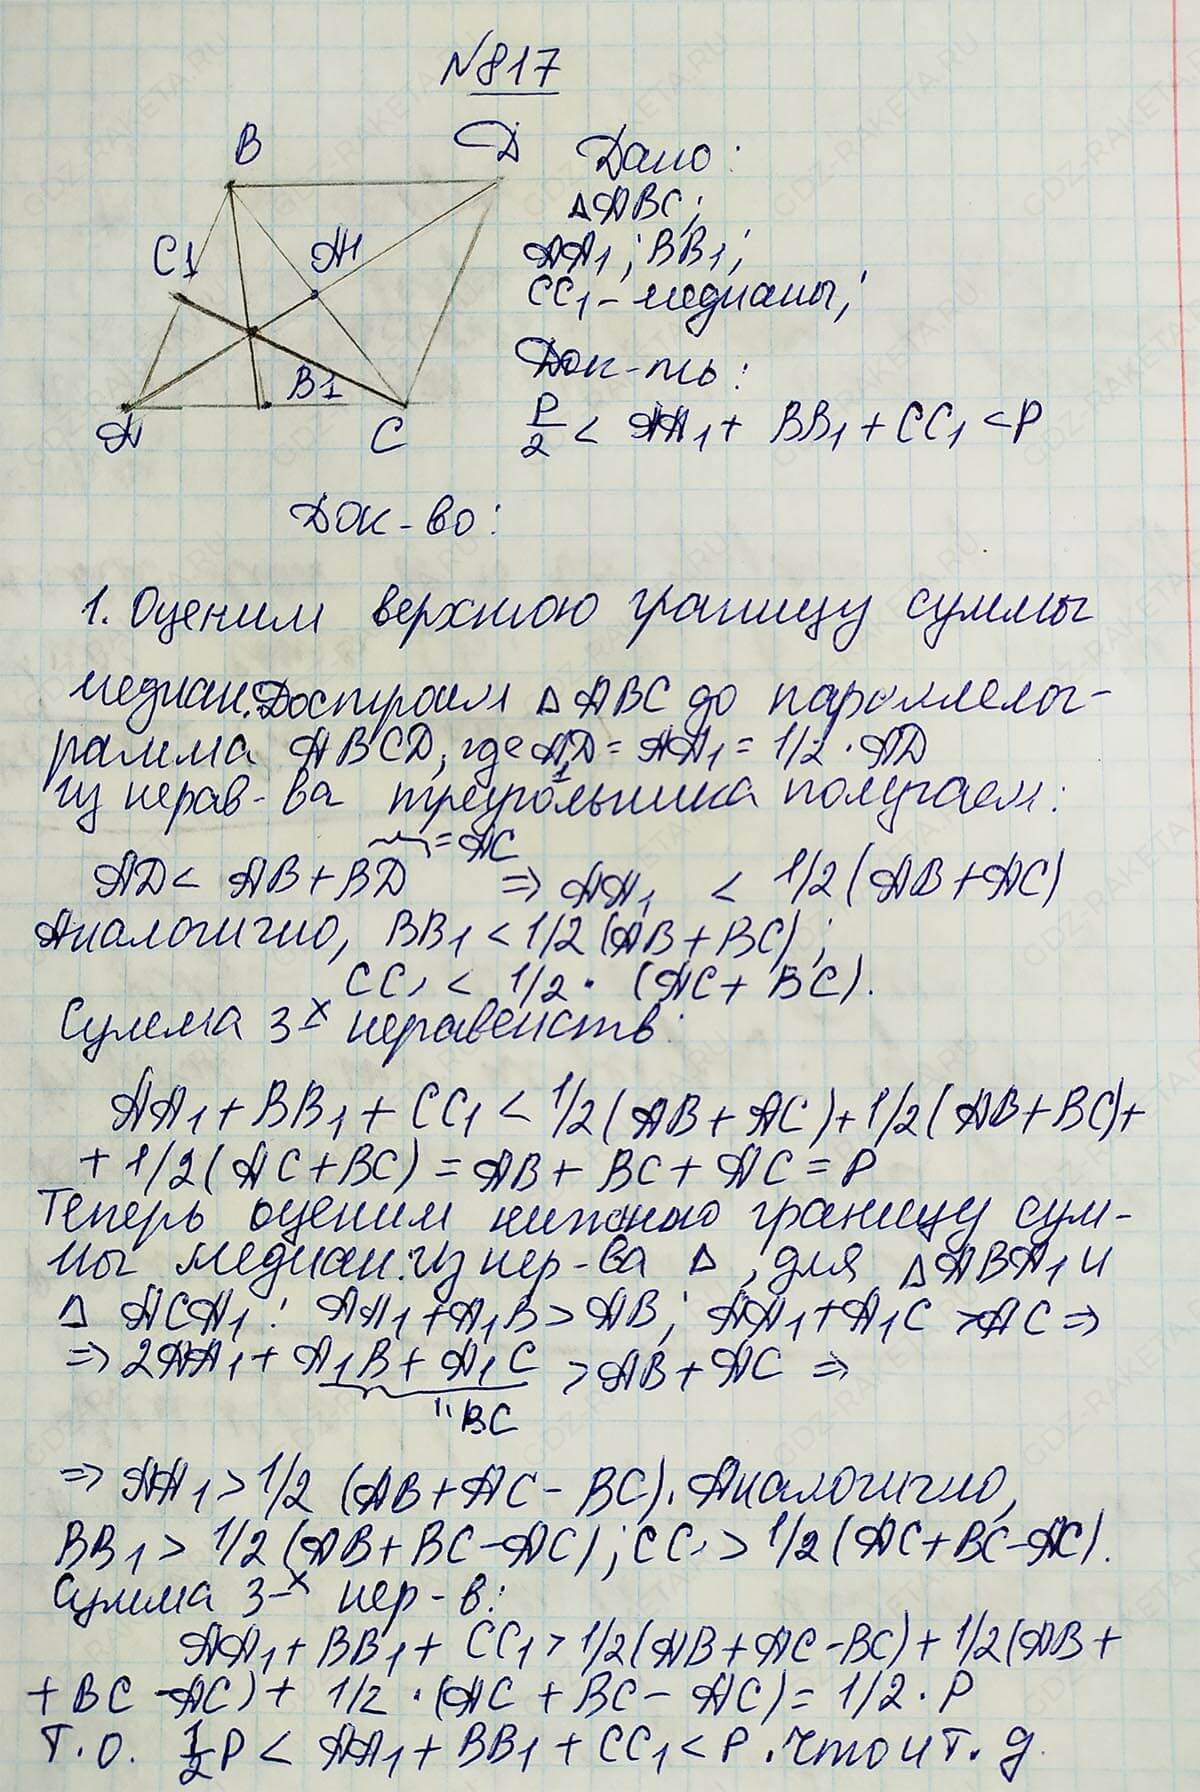 №817
B
D
C1
A1
B1
A
C
Дано:
△ABC;
AA1; BB1;
CC1 - медианы;
Док-ть:
P/2 < AA1 + BB1 + CC1 < P
Док-во:
1. Оценим верхнюю границу суммы
медиан. Достроим △ ABC до параллелог-
рамма ABCD, где A1D = AA1 = 1/2 · AD
Из нерав-ва треугольника получаем:
= AC
AD < AB + BD ⇒ AA1 < 1/2 (AB + AC)
Аналогично, BB1 < 1/2 (AB + BC);
CC1 < 1/2 · (AC + BC).
Сумма 3-х неравенств:
AA1 + BB1 + CC1 < 1/2 (AB + AC) + 1/2 (AB + BC) +
+ 1/2 (AC + BC) = AB + BC + AC = P
Теперь оценим нижнюю границу сум-
мы медиан. Из нер-ва △, для △ABA1 и
△ ACA1: AA1 + A1B > AB; AA1 + A1C > AC ⇒
⇒ 2AA1 + A1B + A1C > AB + AC ⇒
"BC
⇒ AA1 > 1/2 (AB + AC - BC). Аналогично,
BB1 > 1/2 (AB + BC - AC); CC1 > 1/2 (AC + BC - AC).
Сумма 3-х нер-в:
AA1 + BB1 + CC1 > 1/2 (AB + AC - BC) + 1/2 (AB +
+ BC - AC) + 1/2 · (AC + BC - AC) = 1/2 · P
Т.о. 1/2 P < AA1 + BB1 + CC1 < P. Что и т. д.
GDZ-RAKETA.RU